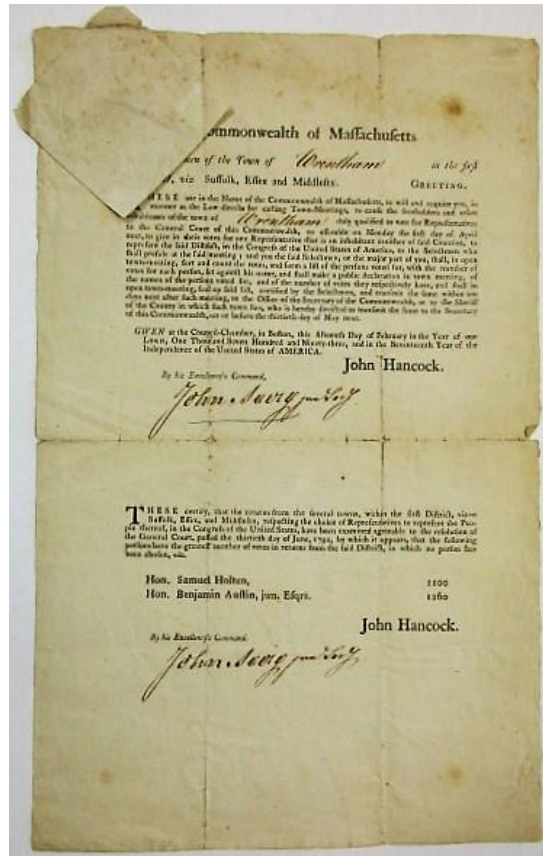 ommonwealth of Massachusetts
men of the Town of Wrentham in the first
viz. Suffolk, Essex and Middlesex. GREETING.
THESE are in the Name of the Commonwealth of Massachusetts, to will and require you, in
manner as the Law directs for calling Town-Meetings, to cause the freeholders and other
inhabitants of the town of Wrentham duly qualified to vote for Representatives
to the General Court of this Commonwealth, to assemble on Monday the first day of April
next, to give in their votes for one Representative that is an inhabitant of said Counties, to
represent the said District, in the Congress of the United States of America, to the Selectmen who
shall preside at the said meeting; and you the said Selectmen, or the major part of you, shall, in open
town-meeting, sort and count the votes, and form a list of the persons voted for, with the number of
votes for each person, set against his name, and shall make a public declaration in town meeting, of
the names of the persons voted for, and of the number of votes they respectively have, and shall in
open town-meeting, seal up said list, certified by the Selectmen, and transmit the same within
days next after such meeting, to the Office of the Secretary of the Commonwealth, or to the Sheriff
of the County in which such town lies, who is hereby directed to transmit the same to the Secretary
of this Commonwealth, on or before the thirtieth day of May next.
GIVEN at the Council-Chamber, in Boston, this fifteenth Day of February in the Year of our
LORD, One Thousand Seven Hundred and Ninety-three, and in the Seventeenth Year of the
Independence of the United States of AMERICA.
John Hancock.
By his Excellency's Command,
John Avery jun Secy
THESE certify, that the returns from the several towns, within the first District, viz.
Suffolk, Essex, and Middlesex, respecting the choice of Representatives to represent the Peo-
ple thereof, in the Congress of the United States, have been examined agreeable to the resolution of
the General Court, passed the thirtieth day of June, 1792, by which it appears, that the following
persons have the greatest number of votes in returns from the said District, in which no person has
been chosen, viz.
Hon. Samuel Holten, 1100
Hon. Benjamin Austin, jun. Esqrs. 1260
John Hancock.
By his Excellency's Command,
John Avery jun Secy